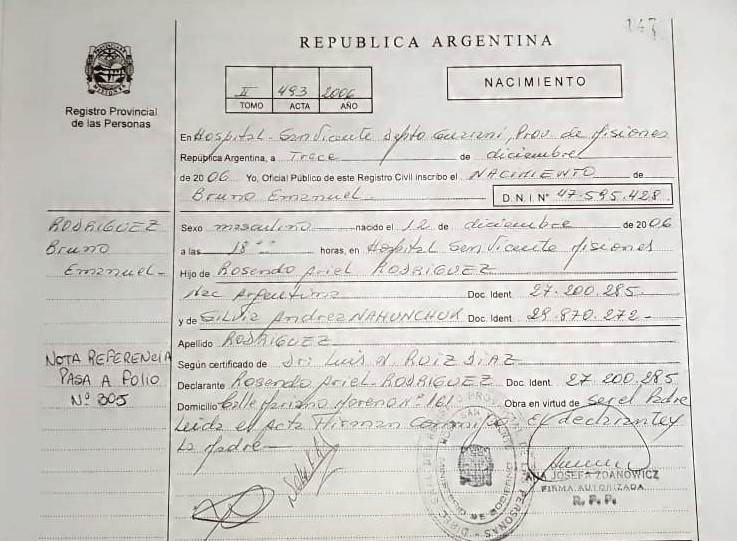 147
REPUBLICA ARGENTINA
Registro Provincial
de las Personas
II 493 2006
TOMO ACTA AÑO
NACIMIENTO
En Hospital - San Vicente Depto Guarani, Prov. de Misiones
República Argentina, a Trece de diciembre
de 2006 Yo, Oficial Público de este Registro Civil inscribo el NACIMIENTO de
Bruno Emanuel D.N.I. Nº 47.595.428
RODRIGUEZ
Bruno
Emanuel-
Sexo masculino nacido el 12 de diciembre de 2006
a las 18 horas, en Hospital San Vicente Misiones
Hijo de Rosendo Ariel RODRIGUEZ
Nac Argentina Doc. Ident 27.200.285.
y de Silvia Andrea NAHUNCHUK Doc. Ident 29.870.272-
Apellido RODRIGUEZ
Según certificado de Luis N. RUIZ DIAZ
Declarante Rosendo Ariel RODRIGUEZ Doc. Ident 27.200.285
Domicilio Calle Mariano Moreno nº 161 Obra en virtud de Ser el Padre
Leida el Acta Firman Conmigo El declarante y
La Madre
NOTA REFERENCIA
PASA A FOLIO
Nº 305
ANA JOSEFA ZDANOWICZ
FIRMA AUTORIZADA
R. P. P.